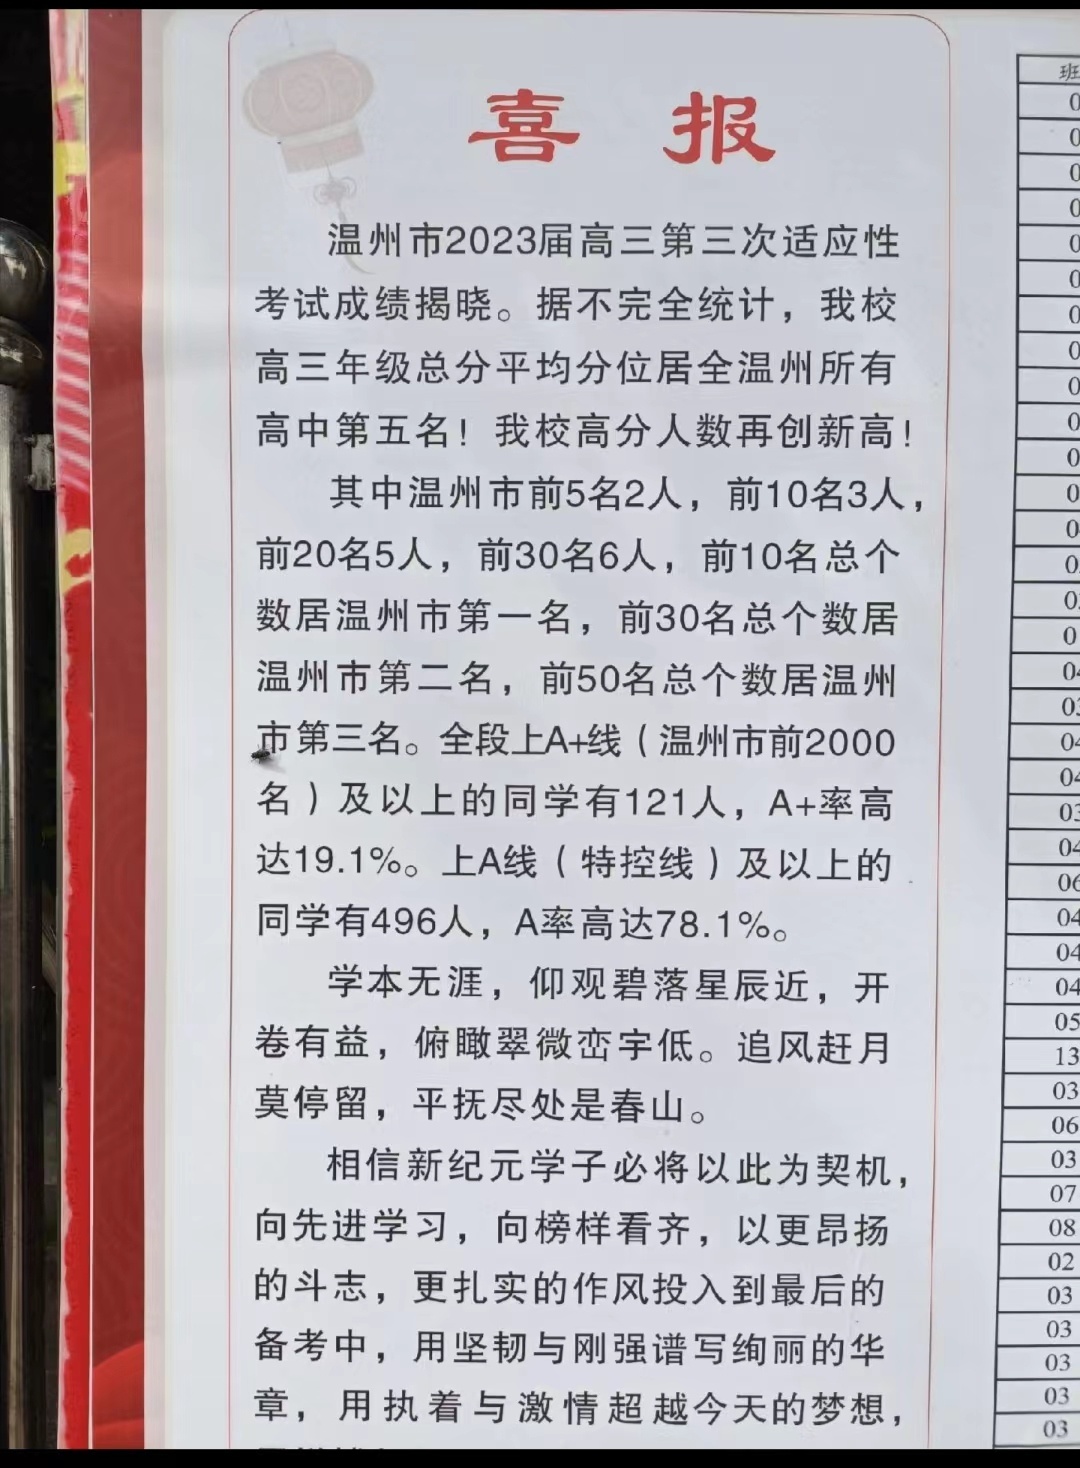 喜报
温州市2023届高三第三次适应性
考试成绩揭晓。据不完全统计，我校
高三年级总分平均分位居全温州所有
高中第五名！我校高分人数再创新高！
其中温州市前5名2人，前10名3人，
前20名5人，前30名6人，前10名总个
数居温州市第一名，前30名总个数居
温州市第二名，前50名总个数居温州
市第三名。全段上A+线（温州市前2000
名）及以上的同学有121人，A+率高
达19.1%。上A线（特控线）及以上的
同学有496人，A率高达78.1%。
学本无涯，仰观碧落星辰近，开
卷有益，俯瞰翠微峦宇低。追风赶月
莫停留，平抚尽处是春山。
相信新纪元学子必将以此为契机，
向先进学习，向榜样看齐，以更昂扬
的斗志，更扎实的作风投入到最后的
备考中，用坚韧与刚强谱写绚丽的华
章，用执着与激情超越今天的梦想，
班
0
0
0
0
0
0
0
0
0
0
0
0
0
0
0
0
04
03
04
04
03
04
06
04
04
04
05
13
03
06
03
07
08
02
03
03
03
03
03